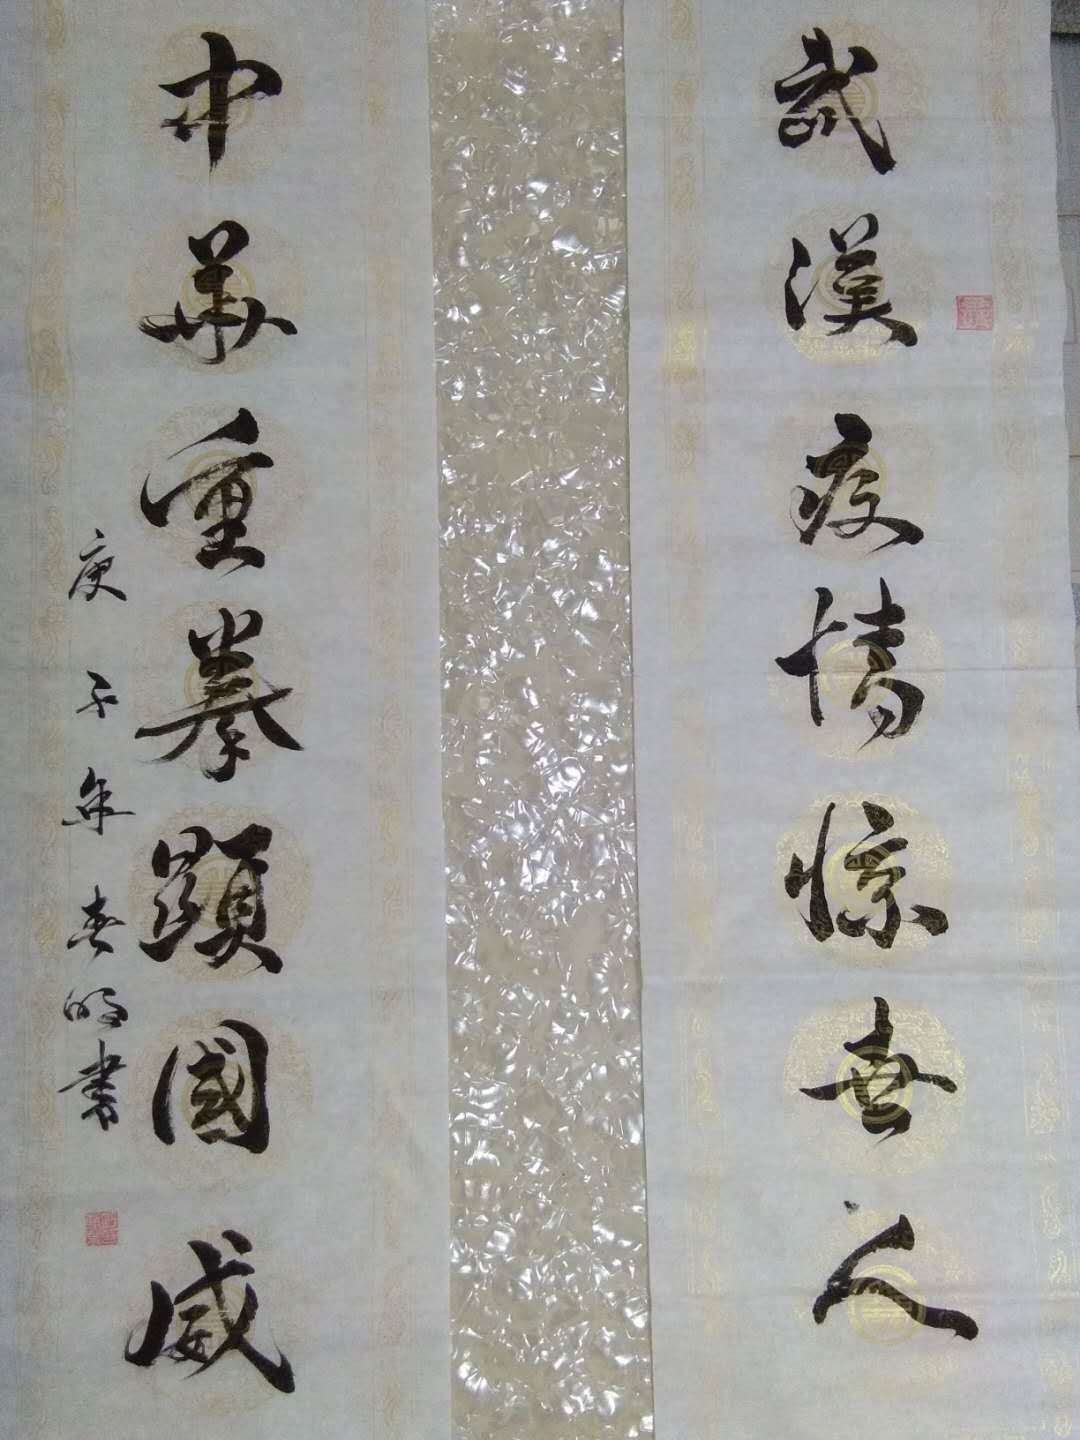 武漢疫情惊世人
中华重拳顕國威
庚子年春明書